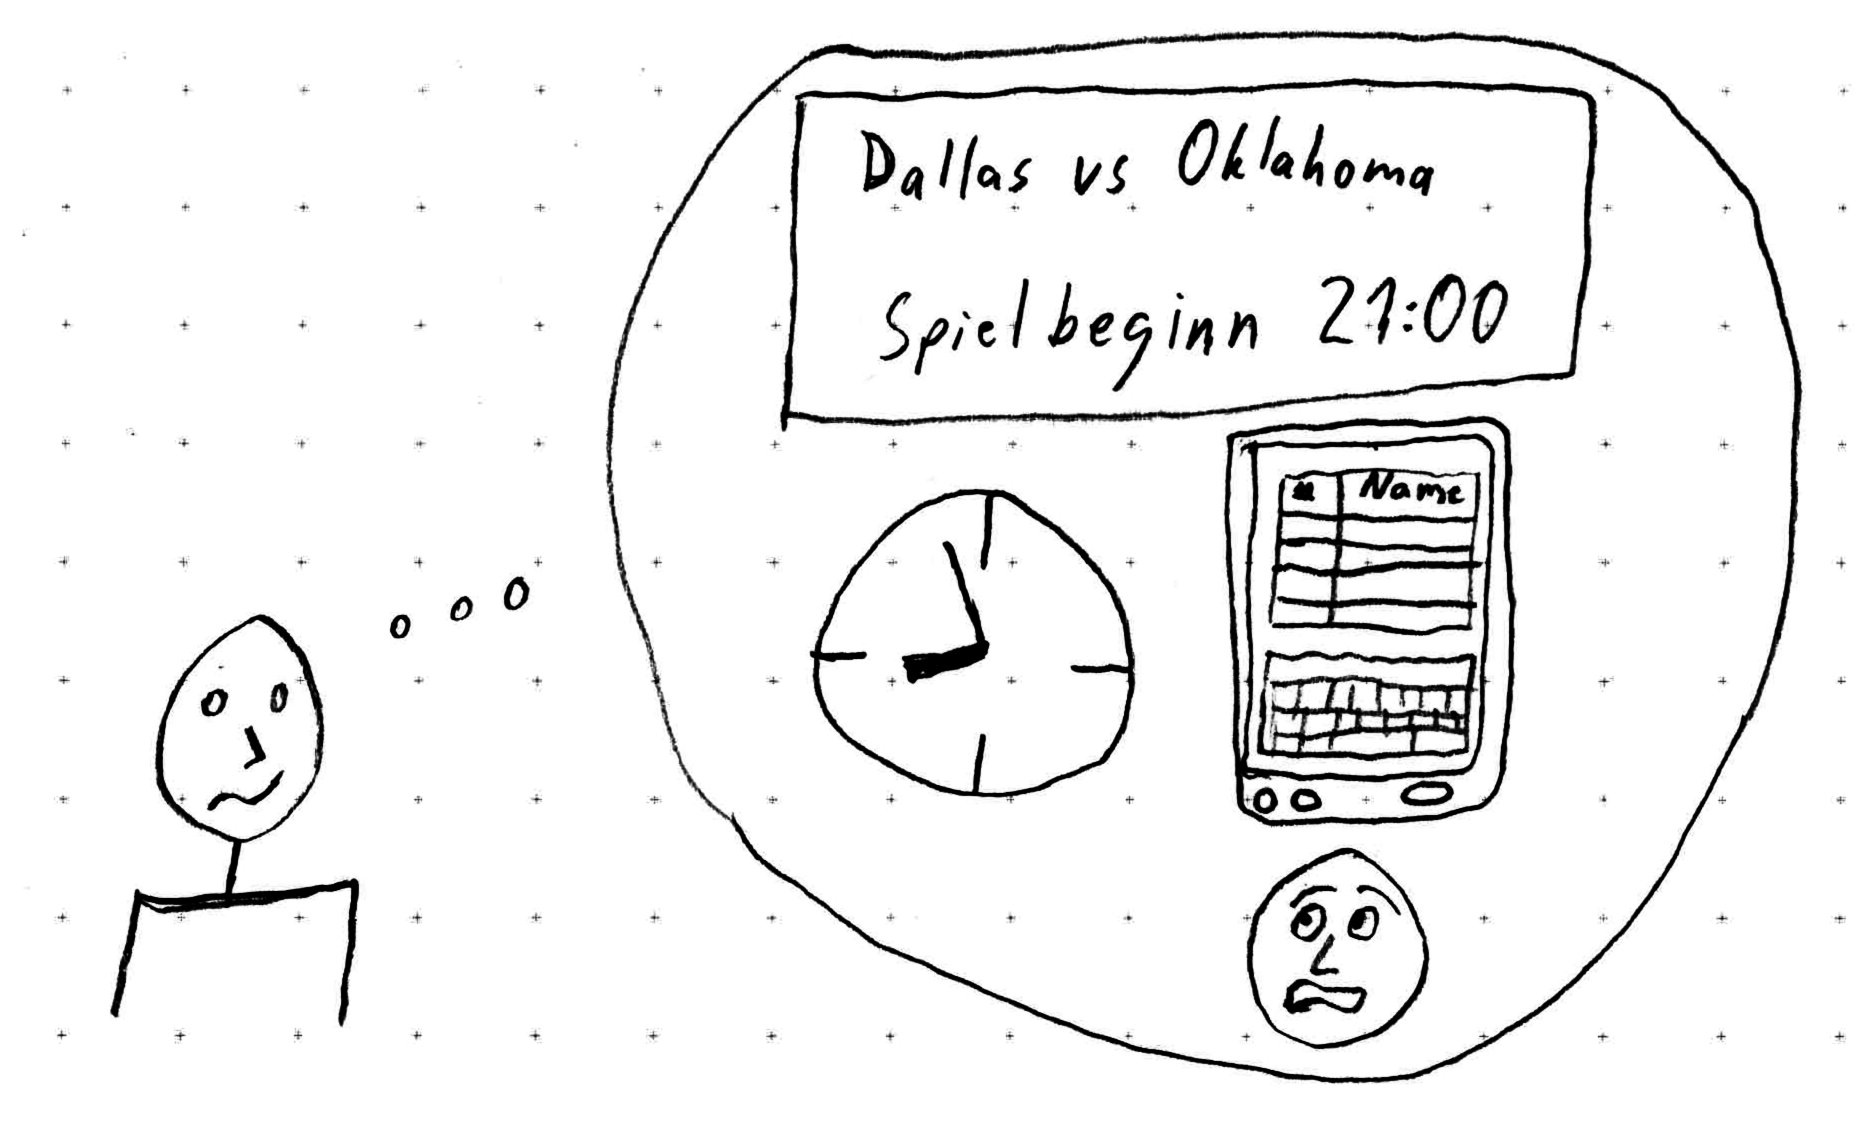 Dallas vs Oklahoma
Spielbeginn 21:00
# Name